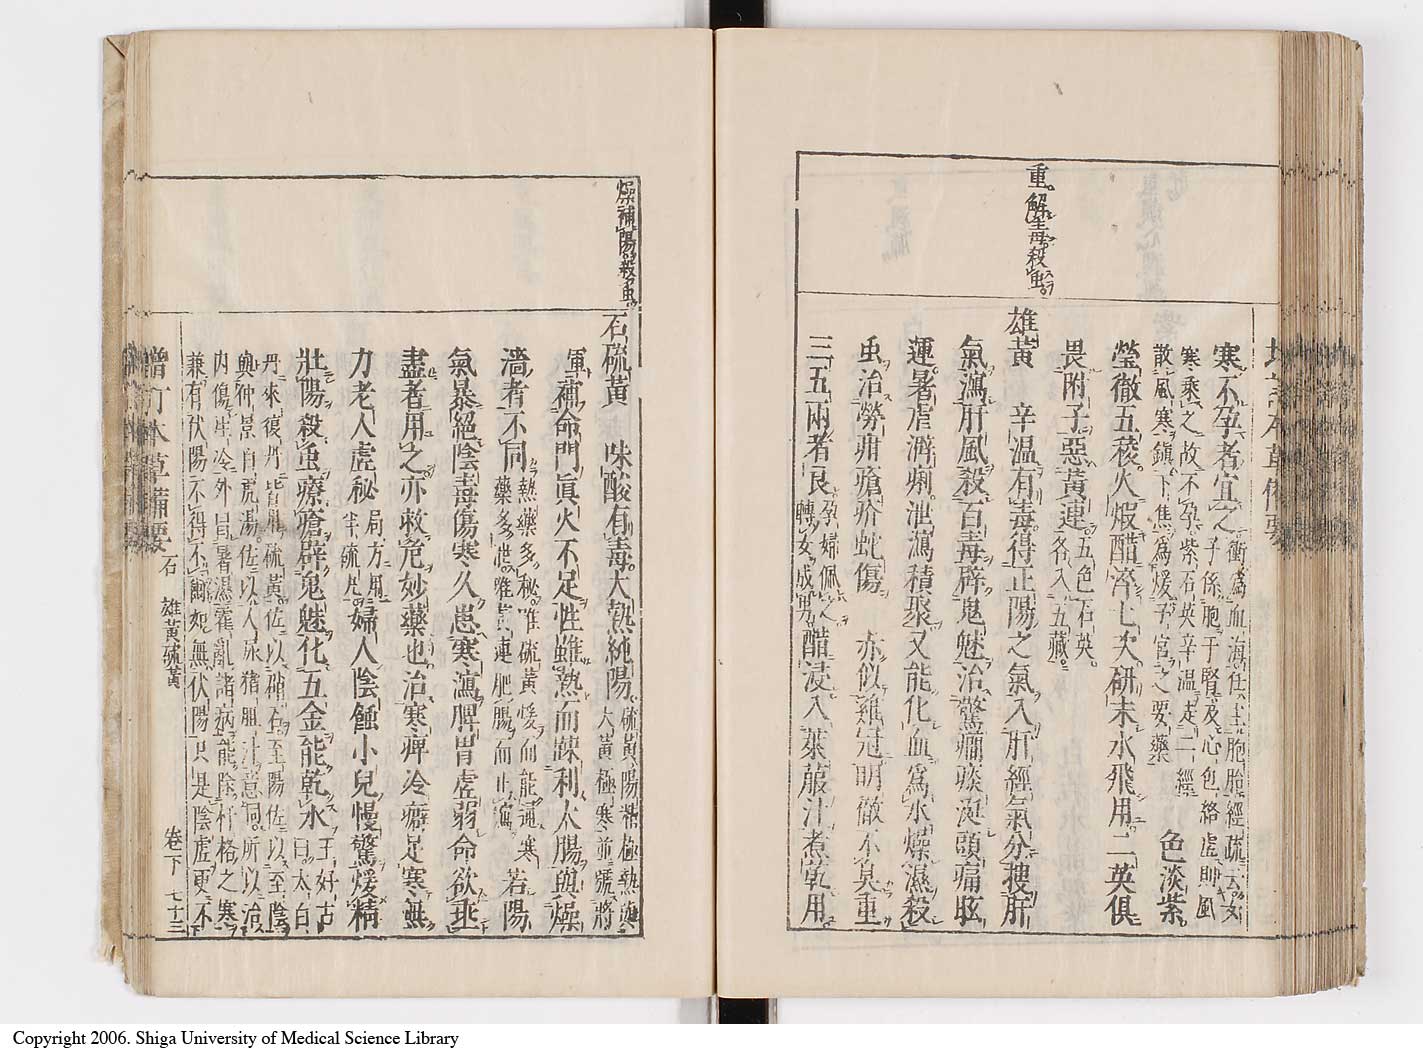 重。解毒。殺虫。
寒不孕者宜之 衝為血海任主胞胎經疏云女
子係胞于腎及心包絡虚則風
寒乘之故不孕紫石英辛温走二經
散風寒鎮下焦為煖子宮之要藥 色淡紫
瑩徹五稜火煆醋淬七次研末水飛用二英俱
畏附子惡黄連 五色石英
各入五藏
雄黄 辛温有毒得正陽之氣入肝經氣分搜肝
氣瀉肝風殺百毒辟鬼魅治驚癇痰涎頭痛眩
運暑瘧澼痢泄瀉積聚又能化血為水燥濕殺
虫治勞疳瘡疥蛇傷 赤似雞冠明徹不臭重
三五兩者良 孕婦佩之
轉女成男 醋浸入萊菔汁煮乾用
燥補陽殺虫
石硫黄 味酸有毒大熱純陽 硫黄陽精極熱與
大黄極寒並號將
軍 補命門眞火不足性雖熱而疎利大腸與燥
濇者不同 熱藥多秘唯硫黄煖而能通寒
藥多泄唯黄連肥腸而止瀉 若陽
氣暴絶陰毒傷寒久患寒瀉脾胃虚弱命欲垂
盡者用之亦救危妙藥也治寒痺冷癖足寒無
力老人虚秘 局方用
半硫丸 婦人陰蝕小兒慢驚煖精
壯陽殺虫療瘡辟鬼魅化五金能乾水 王好古
曰太白
丹來復丹皆用硫黄佐以硝石至陽佐以至陰
與仲景白虎湯佐以人尿猪胆汁意同所以治
内傷生冷外冒暑濕霍亂諸病能除扞格之寒
兼有伏陽不得不爾如無伏陽只是陰虚更不
増訂本草備要 石 雄黄硫黄 卷下 七十三